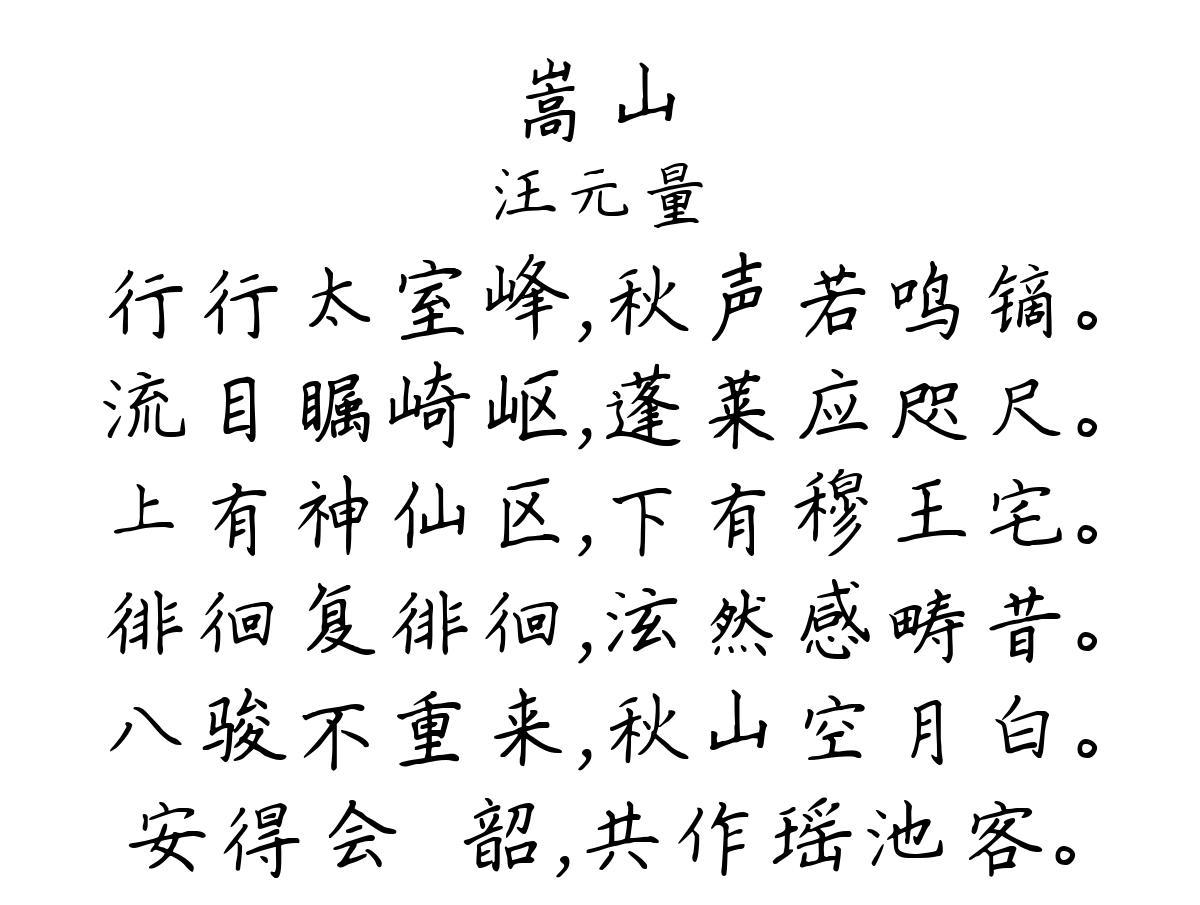 嵩山
汪元量
行行太室峰,秋声若鸣镝。
流目瞩崎岖,蓬莱应咫尺。
上有神仙区,下有穆王宅。
徘徊复徘徊,泫然感畴昔。
八骏不重来,秋山空月白。
安得会 韶,共作瑶池客。